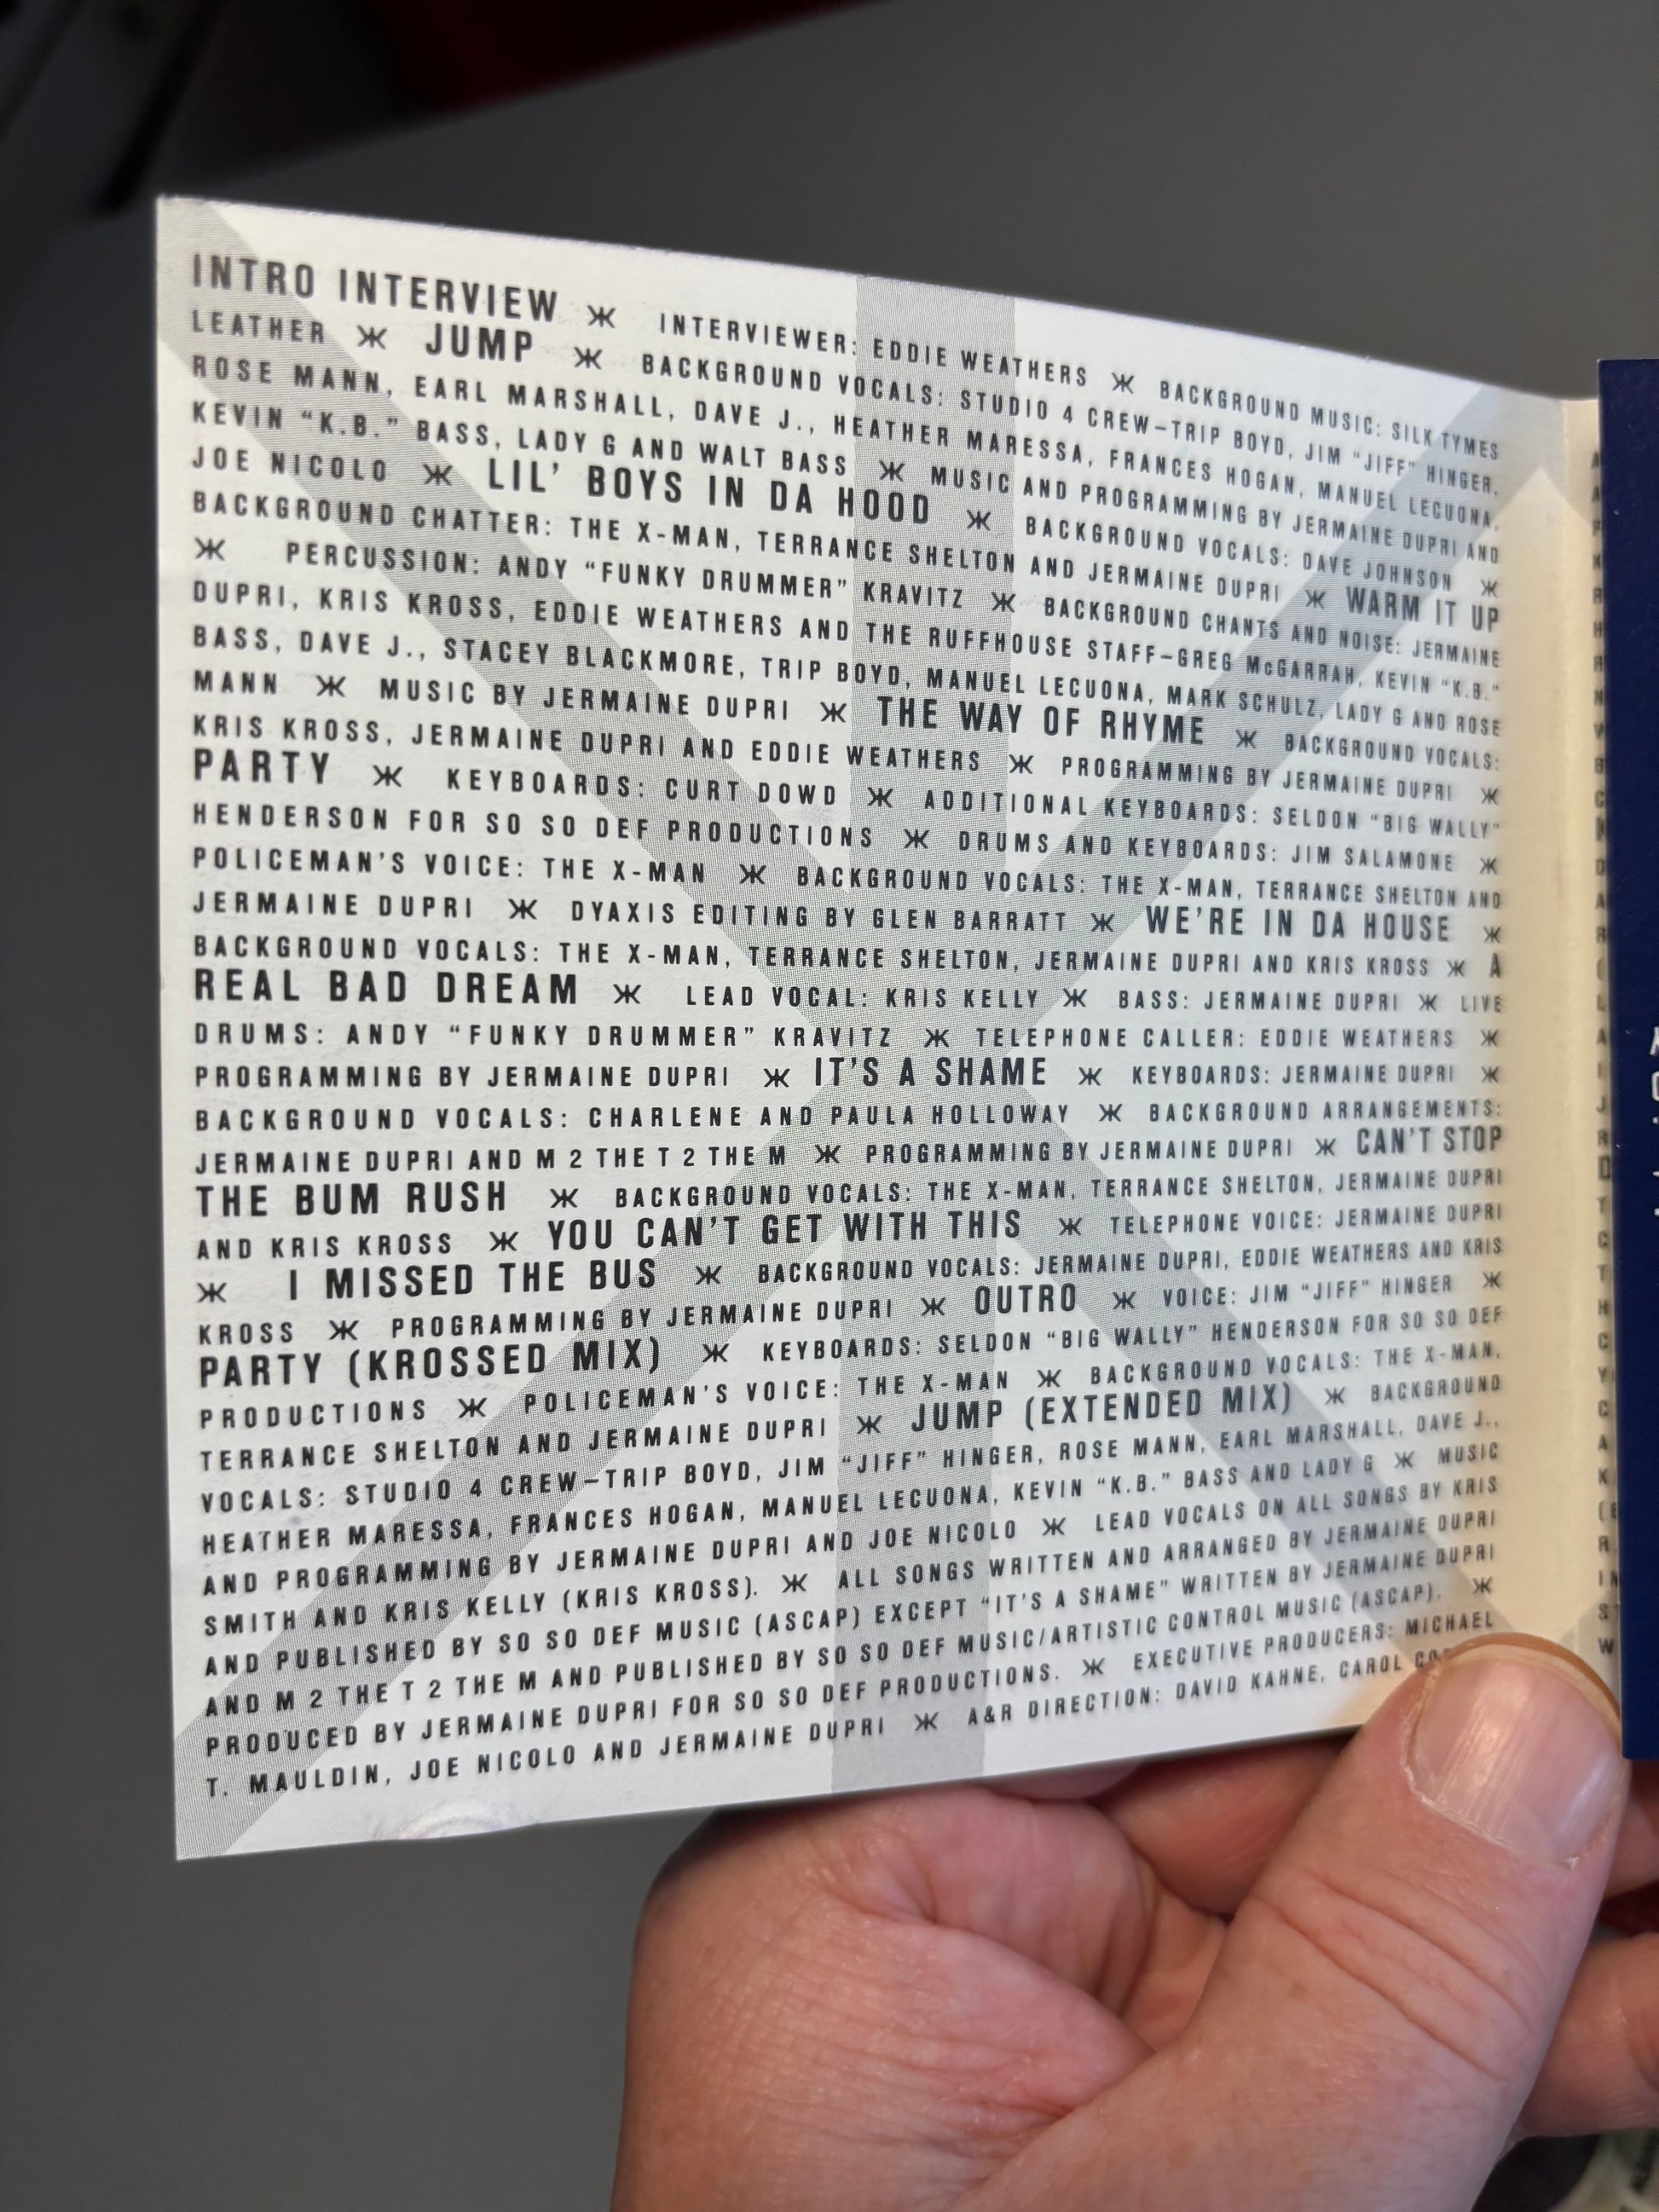 INTRO INTERVIEW Ж INTERVIEWER: EDDIE WEATHERS Ж BACKGROUND MUSIC: SILK TYMES
LEATHER Ж JUMP Ж BACKGROUND VOCALS: STUDIO 4 CREW–TRIP BOYD, JIM "JIFF" HINGER,
ROSE MANN, EARL MARSHALL, DAVE J., HEATHER MARESSA, FRANCES HOGAN, MANUEL LECUONA,
KEVIN "K.B." BASS, LADY G AND WALT BASS Ж MUSIC AND PROGRAMMING BY JERMAINE DUPRI AND
JOE NICOLO Ж LIL' BOYS IN DA HOOD Ж BACKGROUND VOCALS: DAVE JOHNSON Ж
BACKGROUND CHATTER: THE X-MAN, TERRANCE SHELTON AND JERMAINE DUPRI Ж WARM IT UP
Ж PERCUSSION: ANDY "FUNKY DRUMMER" KRAVITZ Ж BACKGROUND CHANTS AND NOISE: JERMAINE
DUPRI, KRIS KROSS, EDDIE WEATHERS AND THE RUFFHOUSE STAFF–GREG McGARRAH, KEVIN "K.B."
BASS, DAVE J., STACEY BLACKMORE, TRIP BOYD, MANUEL LECUONA, MARK SCHULZ, LADY G AND ROSE
MANN Ж MUSIC BY JERMAINE DUPRI Ж THE WAY OF RHYME Ж BACKGROUND VOCALS:
KRIS KROSS, JERMAINE DUPRI AND EDDIE WEATHERS Ж PROGRAMMING BY JERMAINE DUPRI Ж
PARTY Ж KEYBOARDS: CURT DOWD Ж ADDITIONAL KEYBOARDS: SELDON "BIG WALLY"
HENDERSON FOR SO SO DEF PRODUCTIONS Ж DRUMS AND KEYBOARDS: JIM SALAMONE Ж
POLICEMAN'S VOICE: THE X-MAN Ж BACKGROUND VOCALS: THE X-MAN, TERRANCE SHELTON AND
JERMAINE DUPRI Ж DYAXIS EDITING BY GLEN BARRATT Ж WE'RE IN DA HOUSE Ж
BACKGROUND VOCALS: THE X-MAN, TERRANCE SHELTON, JERMAINE DUPRI AND KRIS KROSS Ж A
REAL BAD DREAM Ж LEAD VOCAL: KRIS KELLY Ж BASS: JERMAINE DUPRI Ж LIVE
DRUMS: ANDY "FUNKY DRUMMER" KRAVITZ Ж TELEPHONE CALLER: EDDIE WEATHERS Ж
PROGRAMMING BY JERMAINE DUPRI Ж IT'S A SHAME Ж KEYBOARDS: JERMAINE DUPRI Ж
BACKGROUND VOCALS: CHARLENE AND PAULA HOLLOWAY Ж BACKGROUND ARRANGEMENTS:
JERMAINE DUPRI AND M 2 THE T 2 THE M Ж PROGRAMMING BY JERMAINE DUPRI Ж CAN'T STOP
THE BUM RUSH Ж BACKGROUND VOCALS: THE X-MAN, TERRANCE SHELTON, JERMAINE DUPRI
AND KRIS KROSS Ж YOU CAN'T GET WITH THIS Ж TELEPHONE VOICE: JERMAINE DUPRI
Ж I MISSED THE BUS Ж BACKGROUND VOCALS: JERMAINE DUPRI, EDDIE WEATHERS AND KRIS
KROSS Ж PROGRAMMING BY JERMAINE DUPRI Ж OUTRO Ж VOICE: JIM "JIFF" HINGER Ж
PARTY (KROSSED MIX) Ж KEYBOARDS: SELDON "BIG WALLY" HENDERSON FOR SO SO DEF
PRODUCTIONS Ж POLICEMAN'S VOICE: THE X-MAN Ж BACKGROUND VOCALS: THE X-MAN,
TERRANCE SHELTON AND JERMAINE DUPRI Ж JUMP (EXTENDED MIX) Ж BACKGROUND
VOCALS: STUDIO 4 CREW–TRIP BOYD, JIM "JIFF" HINGER, ROSE MANN, EARL MARSHALL, DAVE J.,
HEATHER MARESSA, FRANCES HOGAN, MANUEL LECUONA, KEVIN "K.B." BASS AND LADY G Ж MUSIC
AND PROGRAMMING BY JERMAINE DUPRI AND JOE NICOLO Ж LEAD VOCALS ON ALL SONGS BY KRIS
SMITH AND KRIS KELLY (KRIS KROSS). Ж ALL SONGS WRITTEN AND ARRANGED BY JERMAINE DUPRI
AND PUBLISHED BY SO SO DEF MUSIC (ASCAP) EXCEPT "IT'S A SHAME" WRITTEN BY JERMAINE DUPRI
AND M 2 THE T 2 THE M AND PUBLISHED BY SO SO DEF MUSIC/ARTISTIC CONTROL MUSIC (ASCAP). Ж
PRODUCED BY JERMAINE DUPRI FOR SO SO DEF PRODUCTIONS. Ж EXECUTIVE PRODUCERS: MICHAEL
T. MAULDIN, JOE NICOLO AND JERMAINE DUPRI Ж A&R DIRECTION: DAVID KAHNE, CAROL